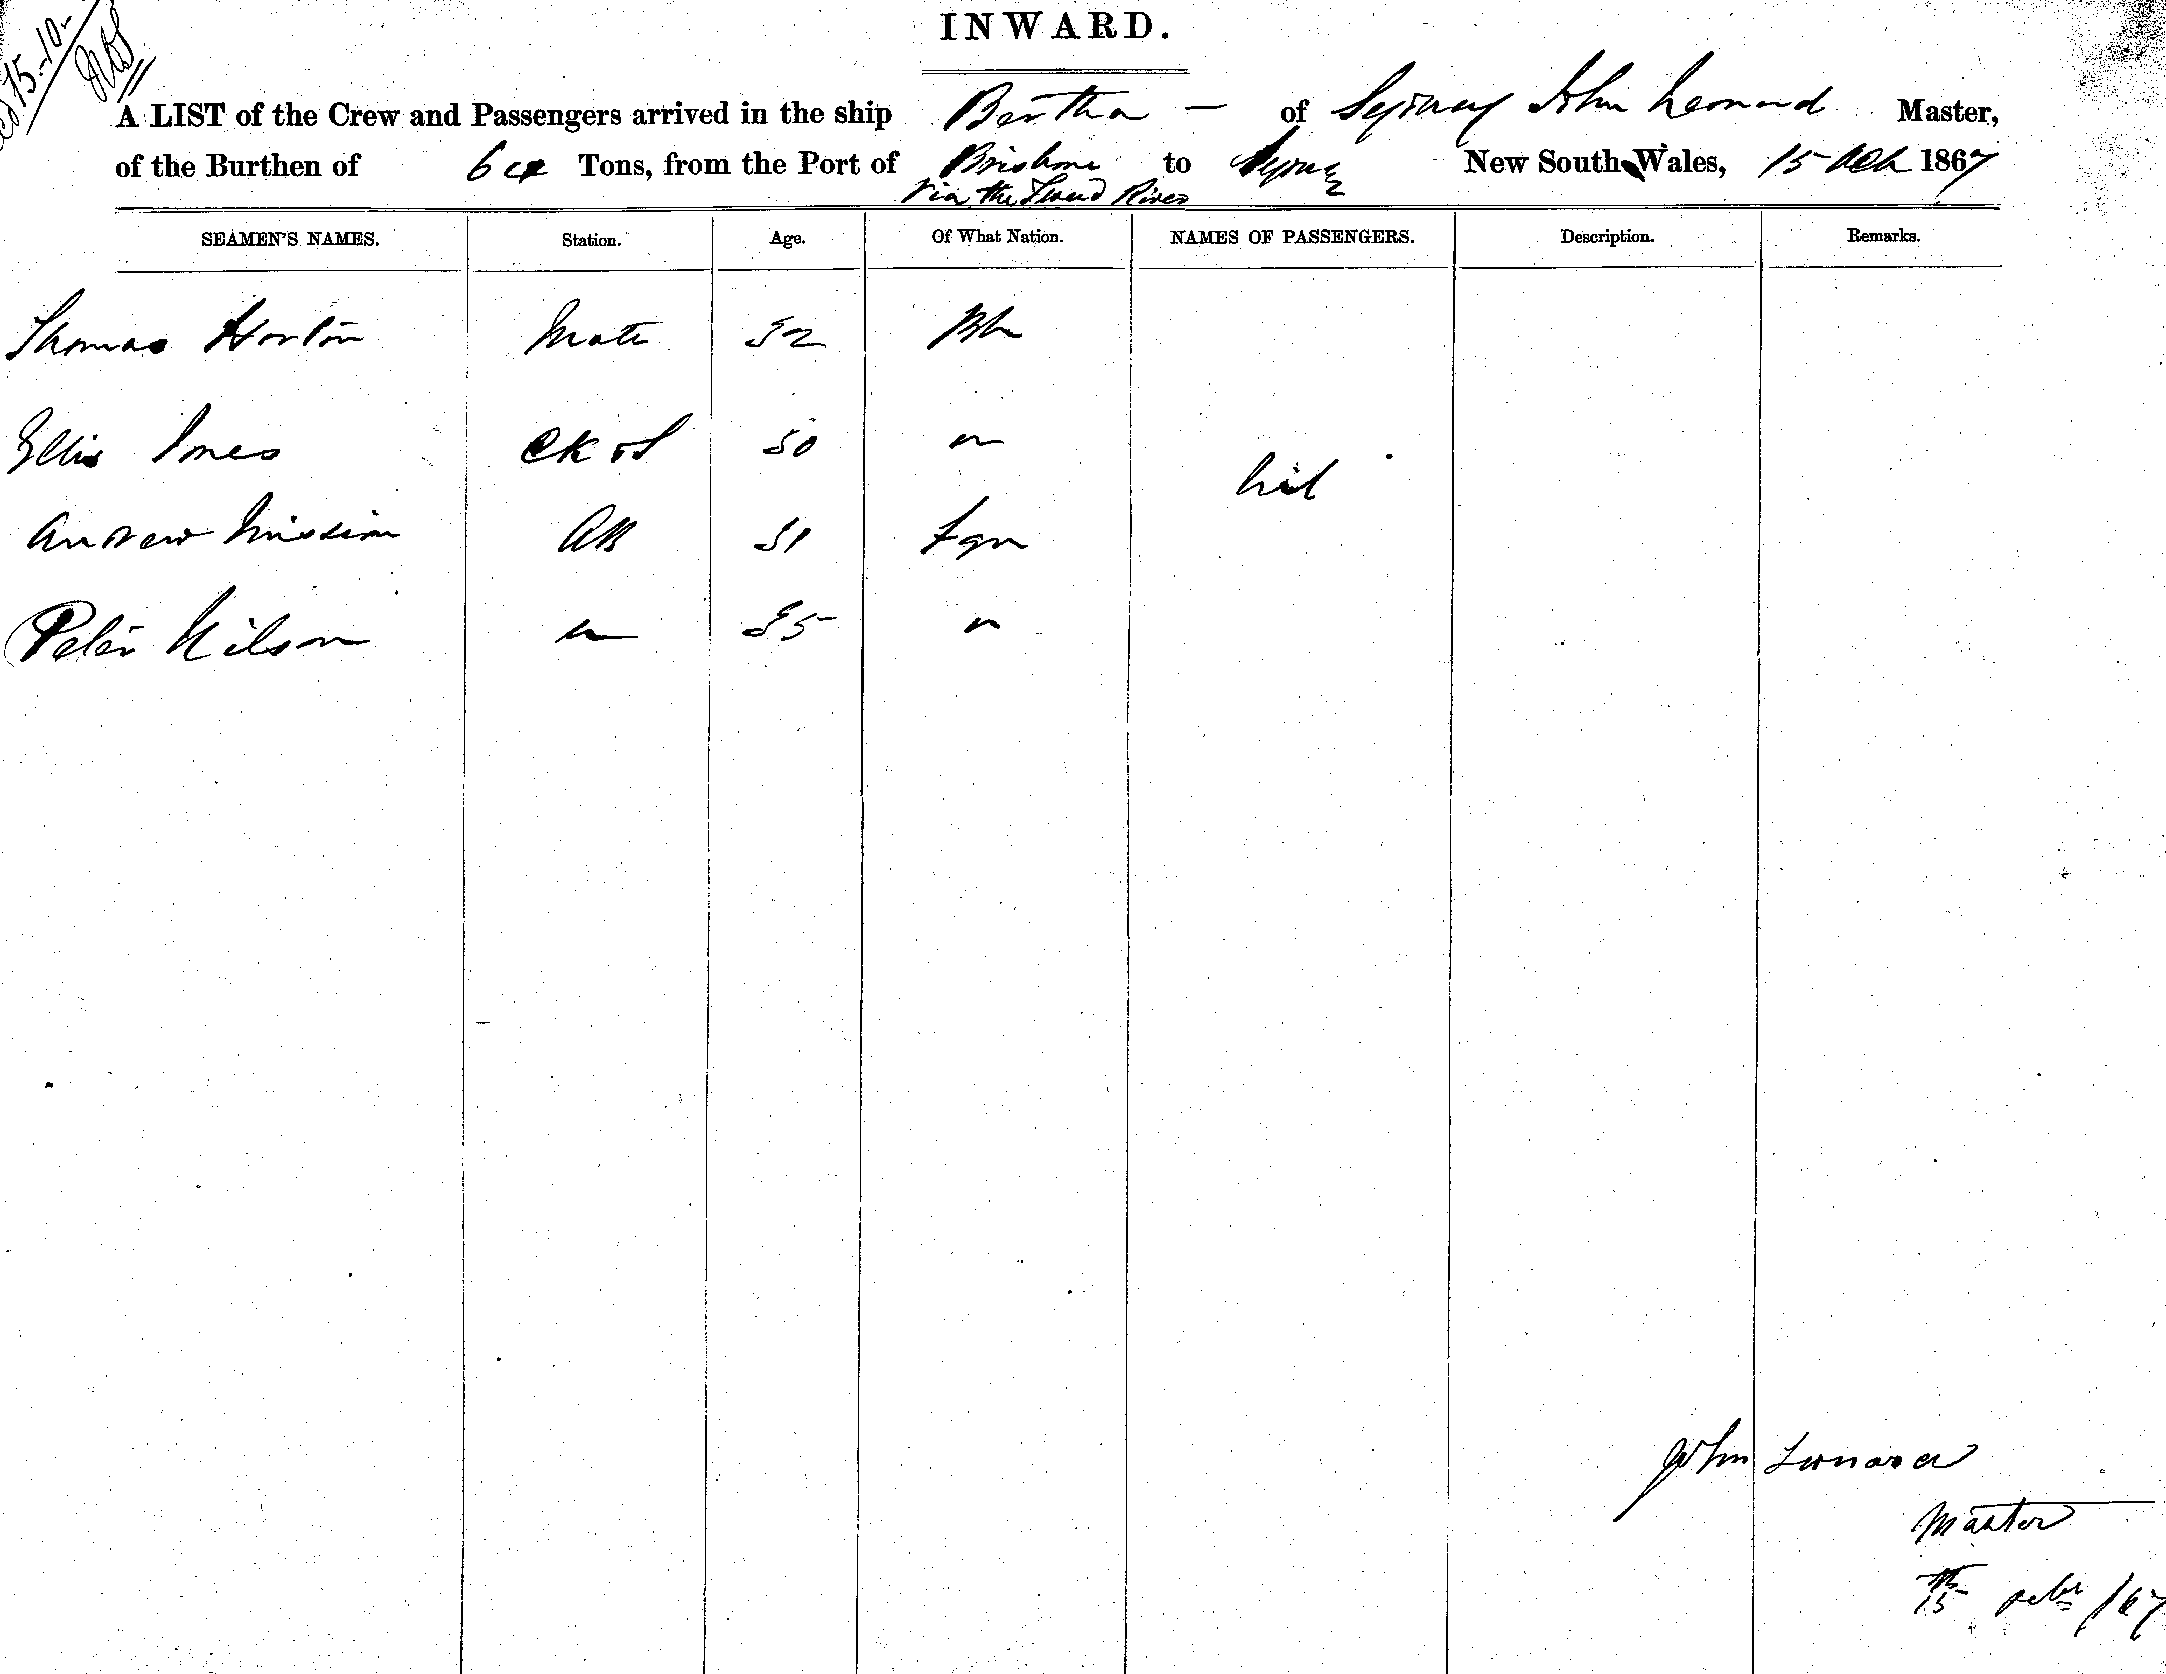 15-10-
INWARD.
A LIST of the Crew and Passengers arrived in the ship Bertha - of Sydney John Leonard Master,
of the Burthen of 64 Tons, from the Port of Brisbane to Sydney New South Wales, 15 Oct 1867
Via the Tweed River
SEAMEN'S NAMES. Station. Age. Of What Nation. NAMES OF PASSENGERS. Description. Remarks.
Thomas Horton Mate 32 Bh
Ellis Jones Ck & S 30 "
nil
Andrew AB 31 Fgn
Peter Nilson " 35 "
John Leonard
Master
15th Octbr /67